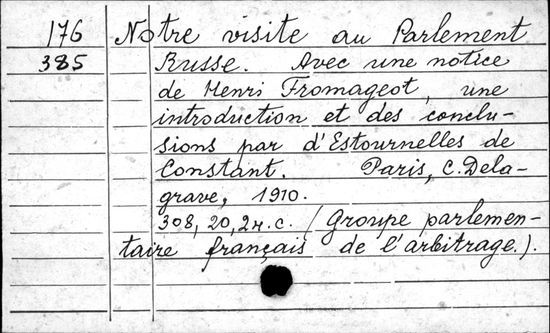 176 Notre visite au Parlement
385 Russe. Avec une notice
de Henri Fromageot, une
introduction et des conclu-
sions par d'Estournelles de
Constant. Paris, C. Dela-
grave, 1910.
308, 20, 2 н. с. (Groupe parlemen-
taire français de l'arbitrage.).